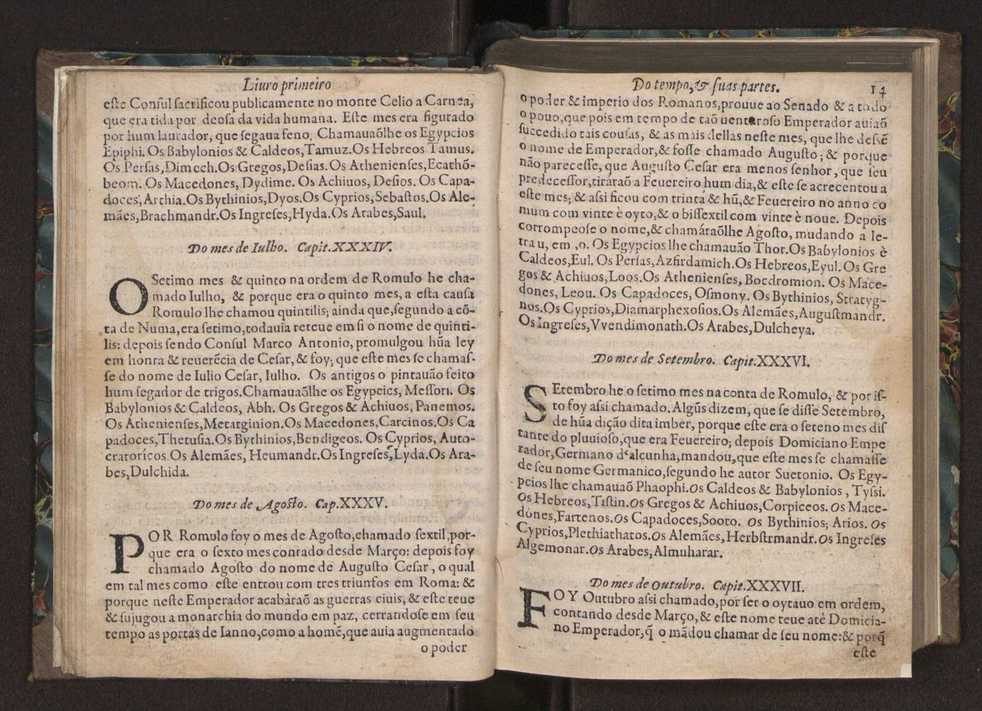 Liuro primeiro
este Consul sacrificou publicamente no monte Celio a Carnea,
que era tida por deosa da vida humana. Este mes era figurado
por hum laurador, que segaua feno, Chamauaõlhe os Egypcios
Epiphi. Os Babylonios & Caldeos, Tamuz. Os Hebreos Tamus.
Os Persas, Dimech. Os Gregos, Desias. Os Athenienses, Ecathõ-
beom. Os Macedones, Dydime. Os Achiuos, Desios. Os Capa-
doces, Archia. Os Bythinios, Dyos. Os Cyprios, Sebastos. Os Ale-
mães, Brachmandr. Os Ingreses, Hyda. Os Arabes, Saul.
Do mes de Iulho. Capit. XXXIV.
O Setimo mes & quinto na ordem de Romulo he cha-
mado Iulho, & porque era o quinto mes, a esta causa
Romulo lhe chamou quintilis; ainda que, segundo a cõ-
ta de Numa, era setimo, todauia reteue em si o nome de quinti-
lis: depois sendo Consul Marco Antonio, promulgou hũa ley
em honra & reuerẽcia de Cesar, & foy; que este mes se chamas-
se do nome de Iulio Cesar, Iulho. Os antigos o pintauão feito
hum segador de trigos. Chamauaõlhe os Egypcios, Messori. Os
Babylonios & Caldeos, Abh. Os Gregos & Achiuos, Panemos.
Os Athenienses, Metarginion. Os Macedones, Carcinos. Os Ca
padoces, Thetusia. Os Bythinios, Bendigeos. Os Cyprios, Auto-
cratoricos. Os Alemães, Heumandr. Os Ingreses, Lyda. Os Ara-
bes, Dulchida.
Do mes de Agosto. Cap. XXXV.
POR Romulo foy o mes de Agosto, chamado sextil, por-
que era o sexto mes contado desde Março: depois foy
chamado Agosto do nome de Augusto Cesar, o qual
em tal mes como este entrou com tres triunfos em Roma: &
porque neste Emperador acabàraõ as guerras ciuis, & este teue
& sujugou a monarchia do mundo em paz, cerrandose em seu
tempo as portas de Ianno, como a homẽ, que auia augmentado
o poder
Do tempo, & suas partes. 14
o poder & imperio dos Romanos, prouue ao Senado & a todo
o pouo, que pois em tempo de taõ venturoso Emperador auiaõ
succedido tais cousas, & as mais dellas neste mes, que lhe desẽ
o nome de Emperador, & fosse chamado Augusto; & porque
não parecesse, que Augusto Cesar era menos senhor, que seu
predecessor, tiràraõ a Feuereiro hum dia, & este se acrecentou a
este mes; & assi ficou com trinta & hũ, & Feuereiro no anno co
mum com vinte è oyto, & o bissextil com vinte è noue. Depois
corrompeose o nome, & chamáraõlhe Agosto, mudando a le-
tra u, em ,o. Os Egypcios lhe chamauão Thor. Os Babylonios è
Caldeos, Eul. Os Persas, Azfirdamich. Os Hebreos, Eyul. Os Gre
gos & Achiuos, Loos. Os Athenienses, Bocdromion. Os Mace-
dones, Leou. Os Capadoces, Osmony. Os Bythinios, Stratyg-
nos. Os Cyprios, Diamarphexosios. Os Alemães, Augustmandr.
Os Ingreses, Vvendimonath. Os Arabes, Dulcheya.
Do mes de Setembro. Capit. XXXVI.
SEtembro he o setimo mes na conta de Romulo, & por is-
to foy assi chamado. Algũs dizem, que se disse Setembro,
de hũa dição dita imber, porque este era o seteno mes dis
tante do pluuioso, que era Feuereiro; depois Domiciano Empe
rador, Germano d'alcunha, mandou, que este mes se chamasse
de seu nome Germanico, segundo he autor Suetonio. Os Egy-
pcios lhe chamauaõ Phaophi. Os Caldeos & Babylonios, Tyssi.
Os Hebreos, Tistin. Os Gregos & Achiuos, Corpiceos. Os Mace-
dones, Fartenos. Os Capadoces, Sooto. Os Bythinios, Arios. Os
Cyprios, Plethiathatos. Os Alemães, Herbstrmandr. Os Ingreses
Algemonar. Os Arabes, Almuharar.
Do mes de Outubro. Capit. XXXVII.
FOY Outubro assi chamado, por ser o oytauo em ordem,
contando desde Março, & este nome teue atè Domicia-
no Emperador, q̃ o mãdou chamar de seu nome: & porq̃
este